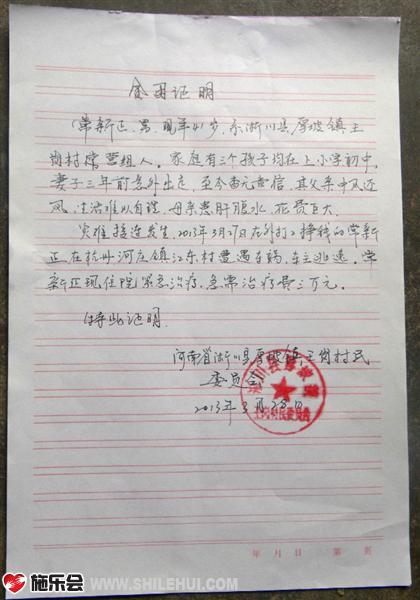 贫困证明
常新正、男、现年41岁,系淅川县厚坡镇王
岗村常营组人。家庭有三个孩子均在上小学初中,
妻子三年前意外出走,至今杳无音信,其父亲中风还
风,生活难以自理,母亲患肝腹水,花费巨大。
灾难接连发生,2013年3月27日在外打工挣钱的常新
正在杭州河庄镇江东村遭遇车祸,车主逃逸。常
新正现住院紧急治疗,急需治疗费三万元。
特此证明
河南省淅川县厚坡镇王岗村民
委员会
2013年3月28日
年 月 日 第 页
施乐会 WWW.SHILEHUI.COM